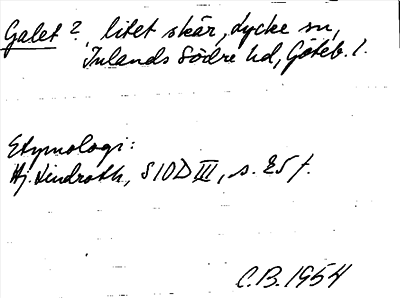 Galet ?, litet skär, Lycke sn,
Inlands Södre hd, Göteb. l.
Etymologi:
Hj. Lindroth, SIOD III, s. 25 f.
C.B. 1954